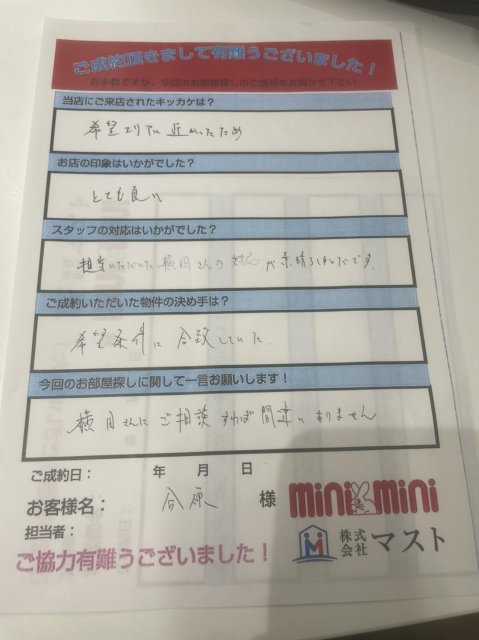 ご成約頂きまして有難うございました！
お手数ですが、今回のお部屋探しのご感想をお聞かせ下さい。
当店にご来店されたキッカケは？
希望エリアに近かったため
お店の印象はいかがでした？
とても良い
スタッフの対応はいかがでした？
担当いただいた 横田さんの対応が素晴らしかったです。
ご成約いただいた物件の決め手は？
希望条件に合致していた。
今回のお部屋探しに関して一言お願いします！
横田さんにご相談すれば間違いありません
ご成約日： 年 月 日
お客様名： 合原 様
mini mini
担当者：
株式会社 マスト
ご協力有難うございました！